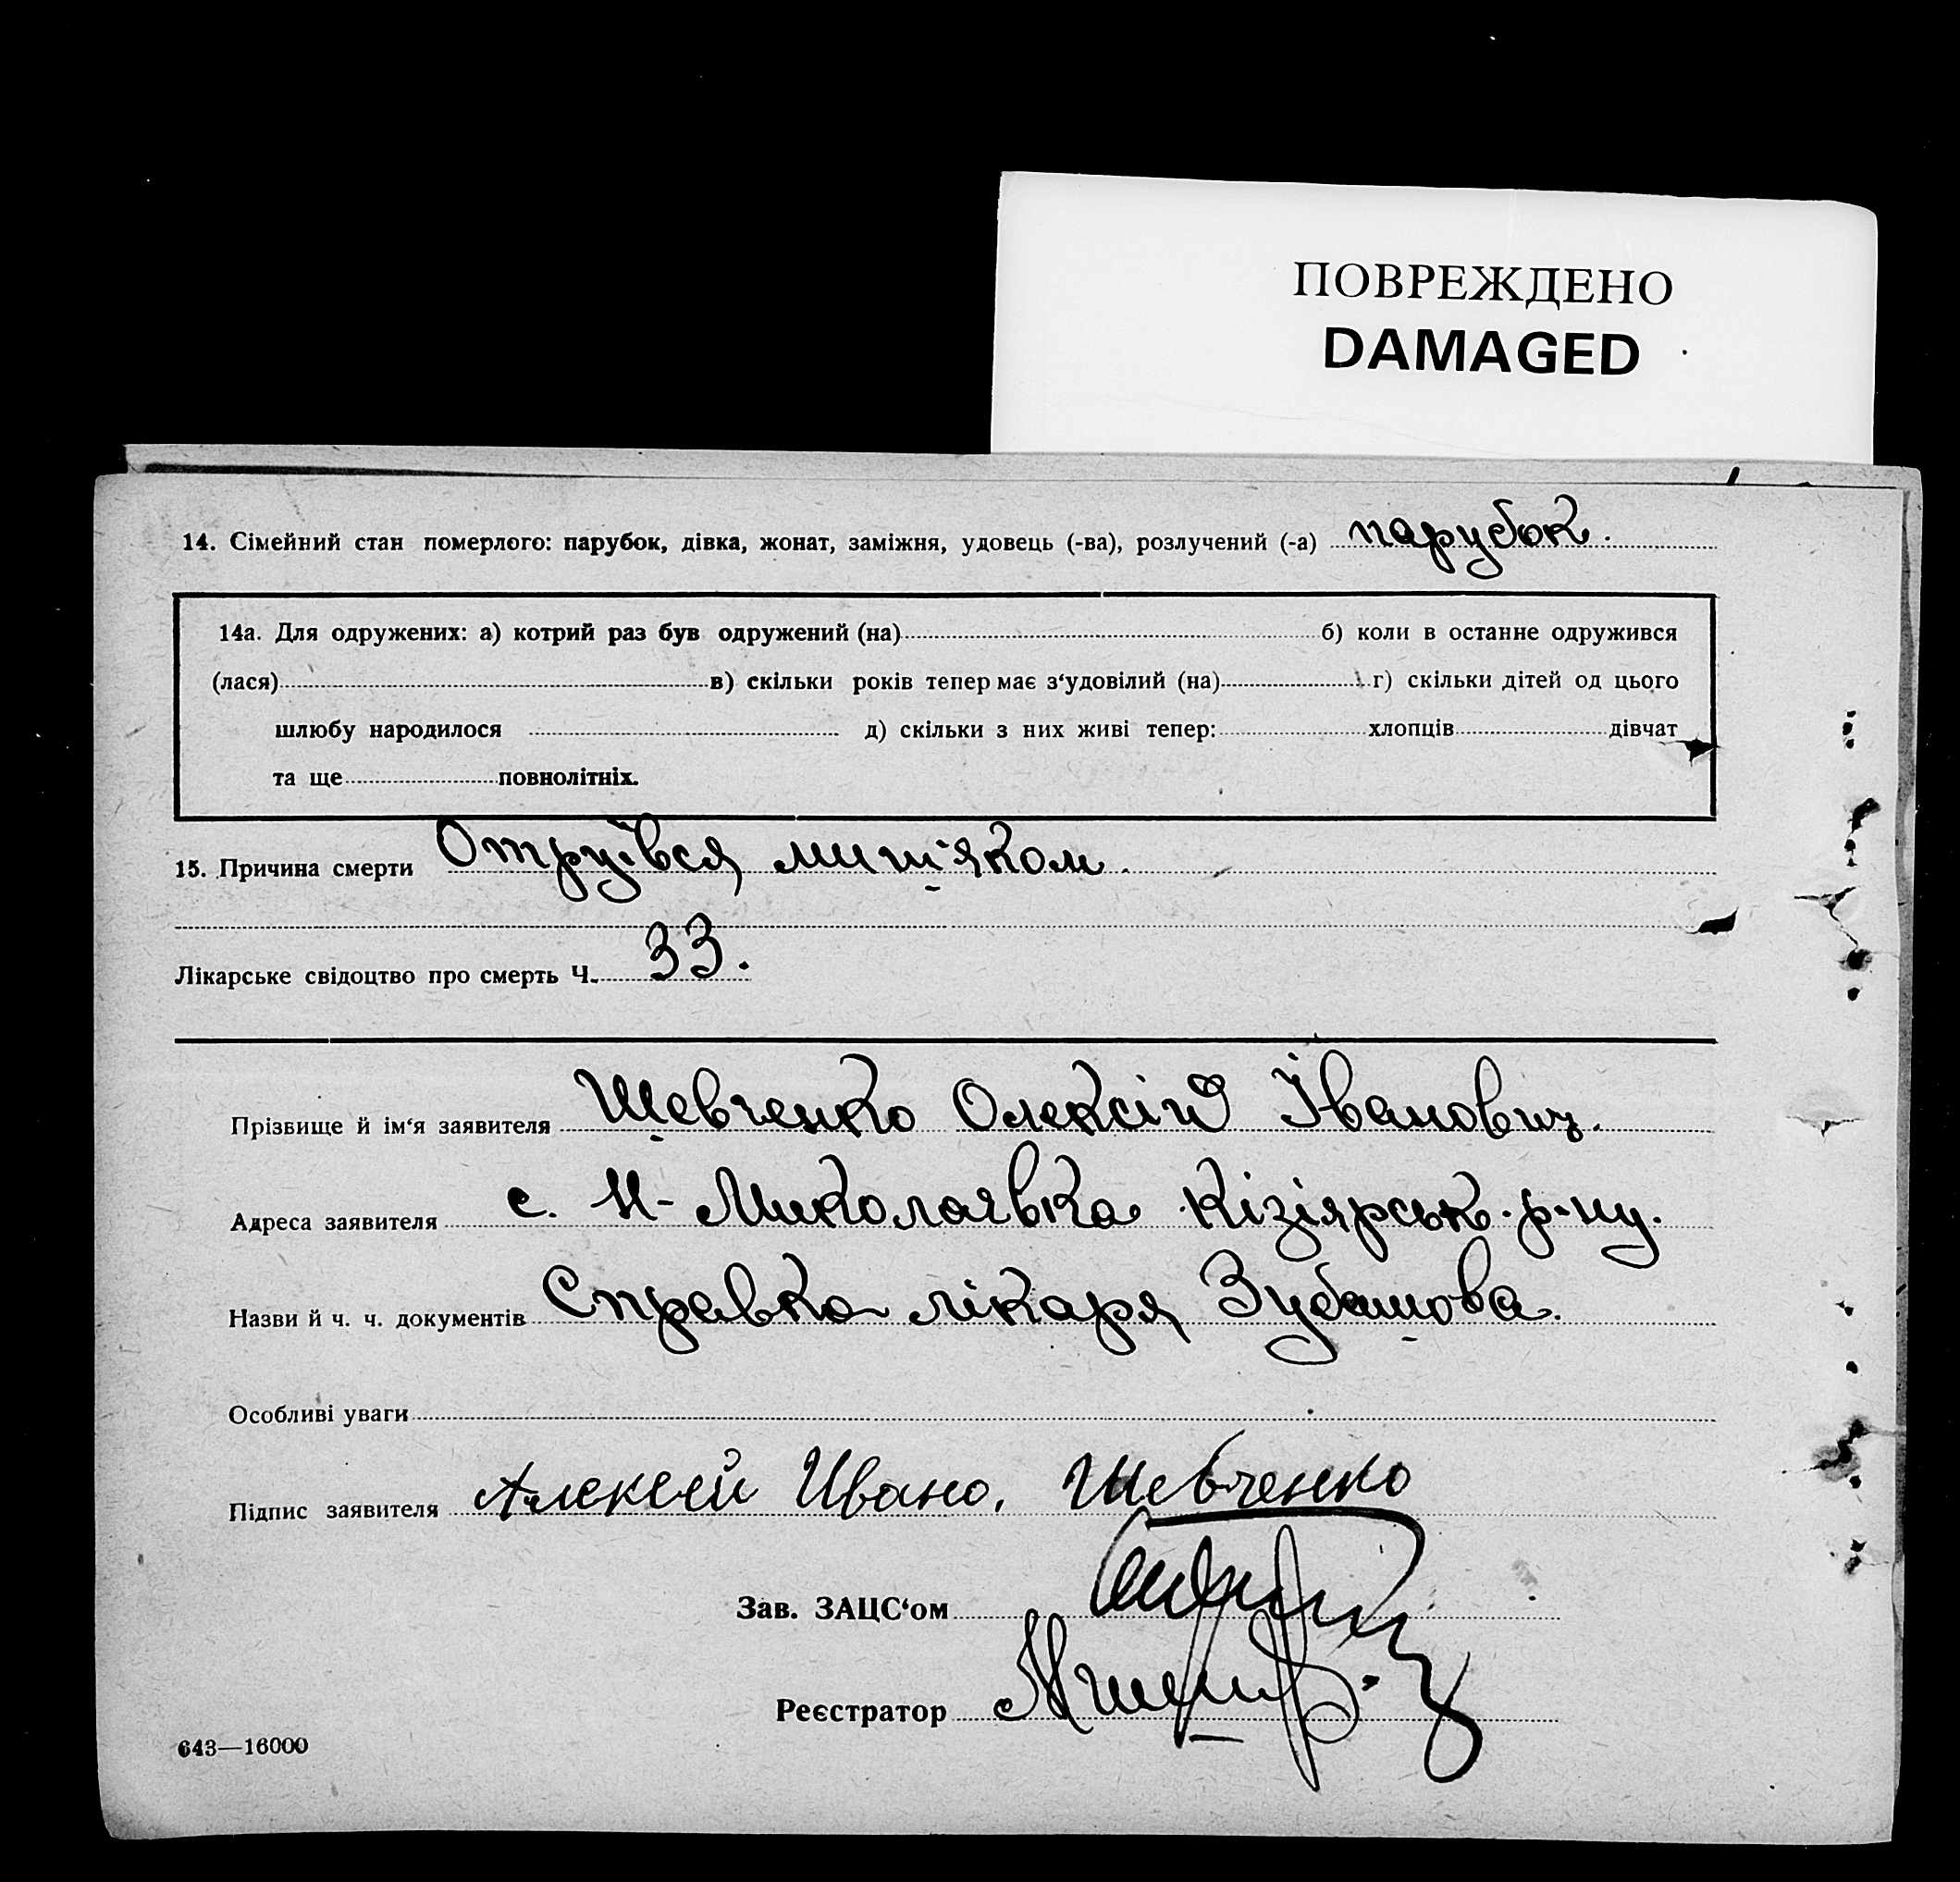 ПОВРЕЖДЕНО
DAMAGED
14. Сімейний стан померлого: парубок, дівка, жонат, заміжня, удовець (-ва), розлучений (-а) парубок.
14а. Для одружених: а) котрий раз був одружений (на) б) коли в останне одружився
(лася) в) скільки років тепер має з‘удовілий (на) г) скільки дітей од цього
шлюбу народилося д) скільки з них живі тепер: хлопців дівчат
та ще повнолітніх.
15. Причина смерти Отруївся миш'яком.
Лікарське свідоцтво про смерть Ч. 33.
Прізвище й ім‘я заявителя Шевченко Олексій Іванович.
Адреса заявителя с. Н-Миколаївка Кізіярськ. р-ну.
Назви й ч. ч. документів Справка лікаря Зубашова.
Особливі уваги
Підпис заявителя Алексей Ивано. Шевченко
Зав. ЗАЦС‘ом
Реєстратор
643—16000